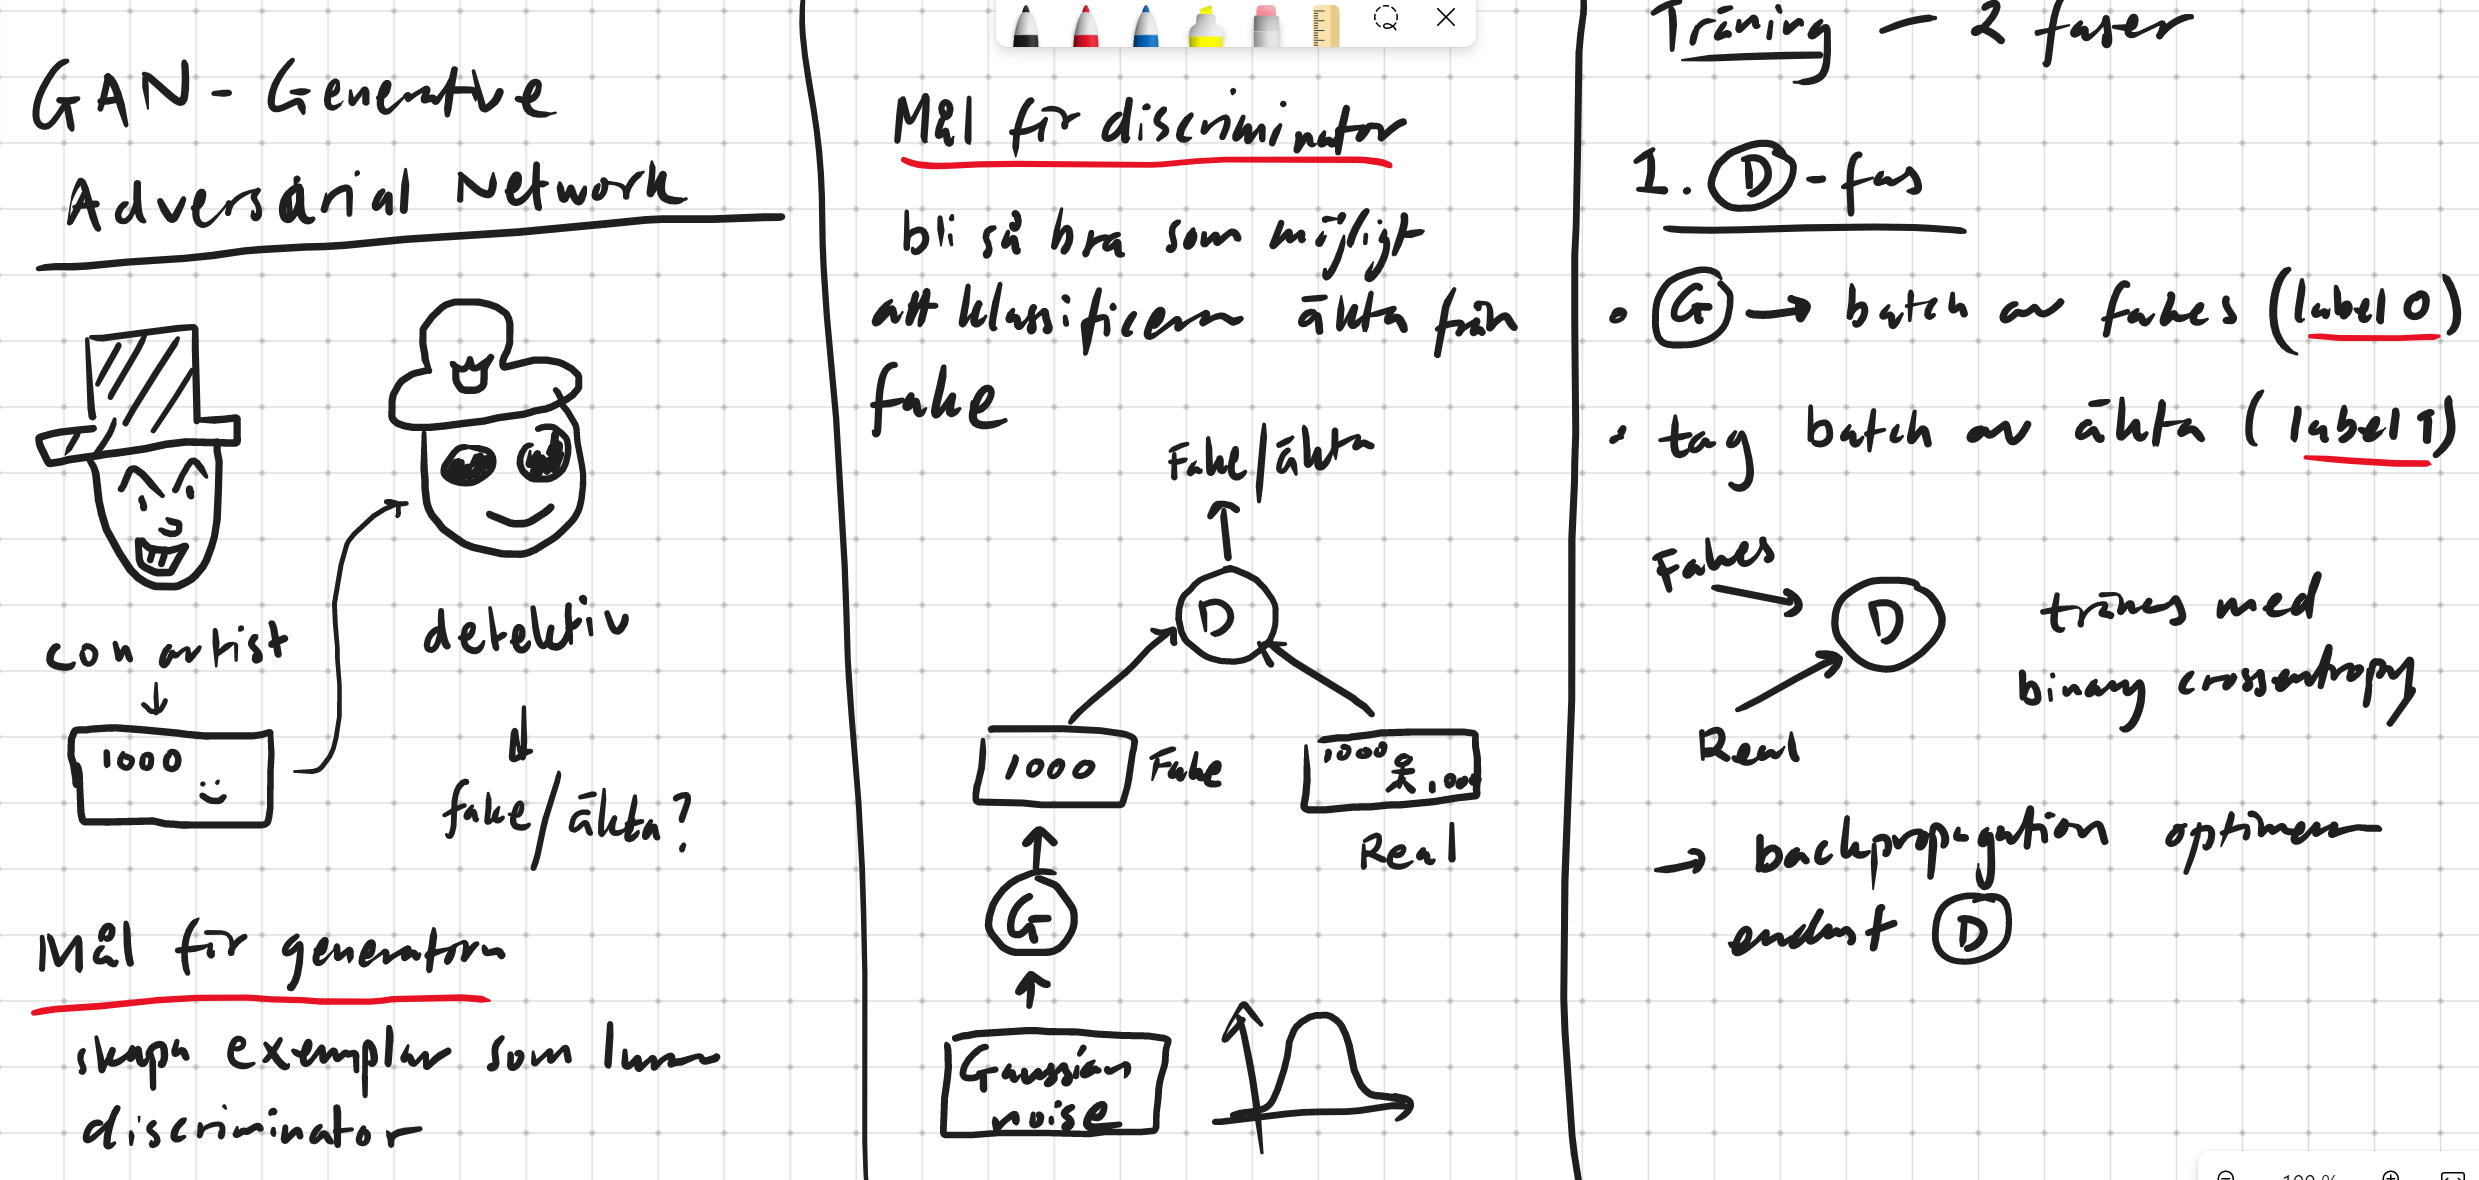 GAN - Generative
Adversarial Network
con artist
1000
detektiv
fake/äkta?
Mål för generatorn
skapa exemplar som lurar
discriminator
Mål för discriminator
bli så bra som möjligt
att klassificera äkta från
fake
Fake/äkta
D
1000
Fake
1000
1000
Real
G
Gaussian
noise
Träning - 2 faser
1. D - fas
• G → batch av fakes (label 0)
• tag batch av äkta (label 1)
Fakes
D
Real
tränas med
binary crossentropy
→ backpropagation optimerar
endast D
100 %